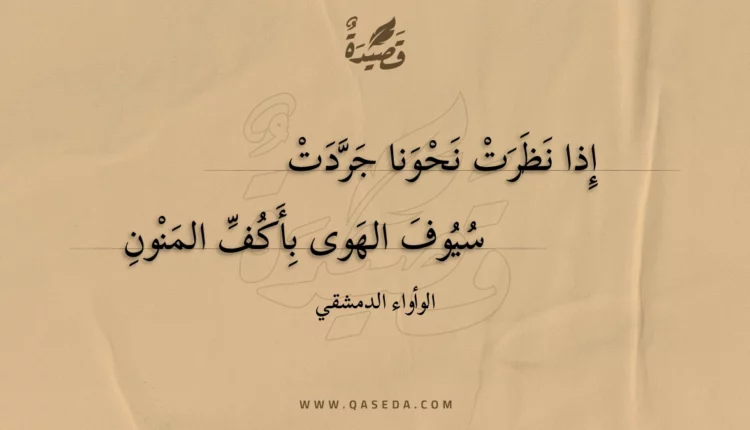 قَصِيدَةٌ
إِذا نَظَرَتْ نَحْوَنا جَرَّدَتْ
سُيُوفَ الهَوى بِأَكُفِّ المَنْونِ
الوأواء الدمشقي
WWW.QASEDA.COM